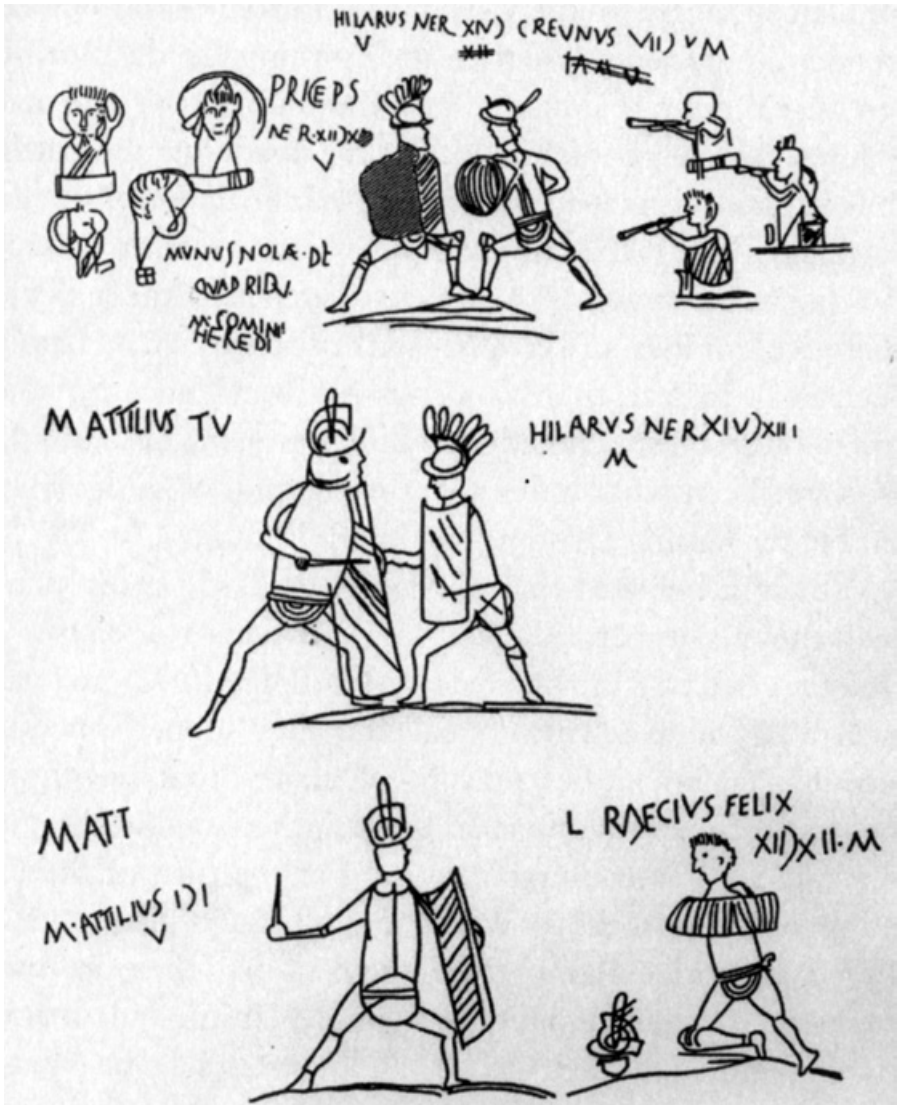 HILARUS NER XIV) CREUNUS VII) V M
V
XII
PRICEPS
NER·XII)XII
V
MVNUS NOLÆ·DE
QUADRIDV
M·COMINII
HEREDI
M ATTILIUS TV
HILARVS NER XIV)XIII
M
MATT
M·ATTILIUS I)I
V
L RAECIVS FELIX
XII)XII·M